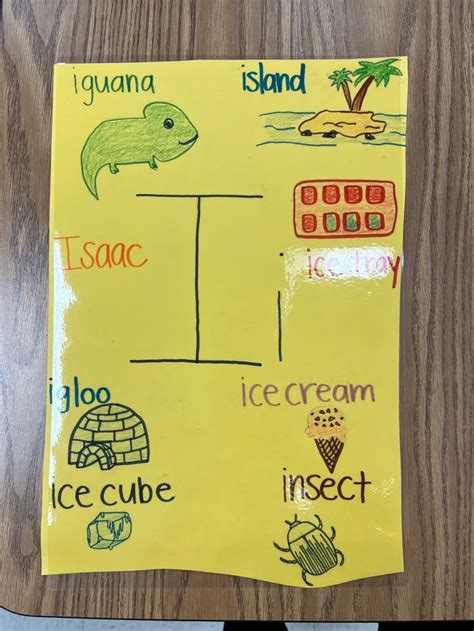 iguana
island
I i
Isaac
ice tray
igloo
ice cream
ice cube
insect